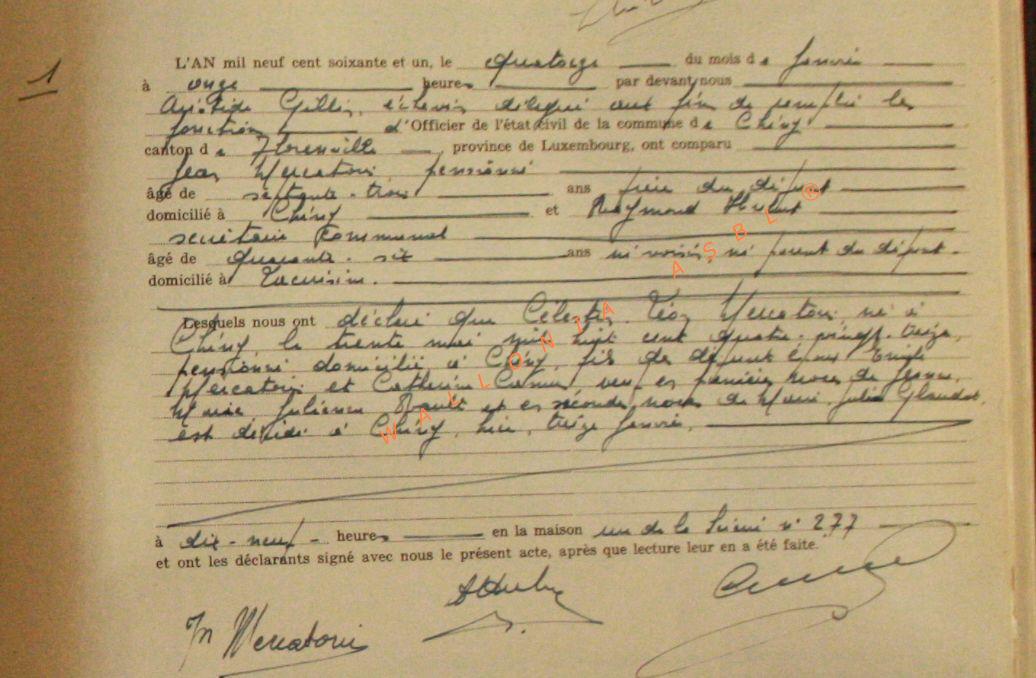 1
L'AN mil neuf cent soixante et un, le quatorze du mois de Janvier
à onze heures par devant nous
Aristide Gillin, échevin délégué aux fin de remplir les
fonctions d'Officier de l'état civil de la commune de Chiny
canton de Florenville, province de Luxembourg, ont comparu
Jean Mercatoris pensionné
âgé de septante-trois ans frère du défunt
domicilié à Chiny et Raymond Hubert
secrétaire communal
âgé de quarante-six ans ni voisin, ni parent du défunt.
domicilié à Lacuisine.
Lesquels nous ont déclaré que Célestin Léon Mercatoris, né à
Chiny, le trente mai mil huit cent quatre-vingt-treize,
pensionné domicilié à Chiny, fils de défunt Emile
Mercatoris et Catherine veuf en première noces de Jeanne,
Marie, Julienne et en seconde noces de Marie Julie Glaudot,
est décédé à Chiny, hier, treize Janvier,
à dix-neuf heures en la maison rue de la n° 277
et ont les déclarants signé avec nous le présent acte, après que lecture leur en a été faite.
Jn Mercatoris
WALLONIA ASBL ®